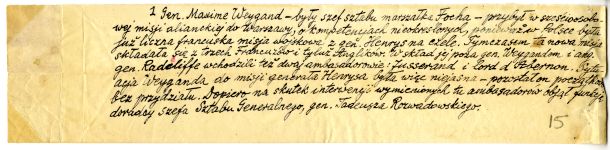 1 Gen. Maxime Weygand – były szef sztabu marszałka Focha – przybył w sześcioosobo-
wej misji alianckiej do Warszawy, o kompetencjach nieokreślonych, ponieważ w Polsce była
już liczna francuska misja wojskowa z gen. Henrys na czele. Tymczasem ta nowa misja
składała się z trzech Francuzów i tyluż Anglików. W skład jej poza gen. Weygandem i
gen. Radcliffe wchodzili też dwaj ambasadorowie: Jusserand i lord d'Abernon.
acja Weyganda do misji generała Henrysa była więc niejasna – pozostał on początkowo
bez przydziału. Dopiero na skutek interwencji wymienionych tu ambasadorów objął funkcję
doradcy Szefa Sztabu Generalnego, gen. Tadeusza Rozwadowskiego.
15